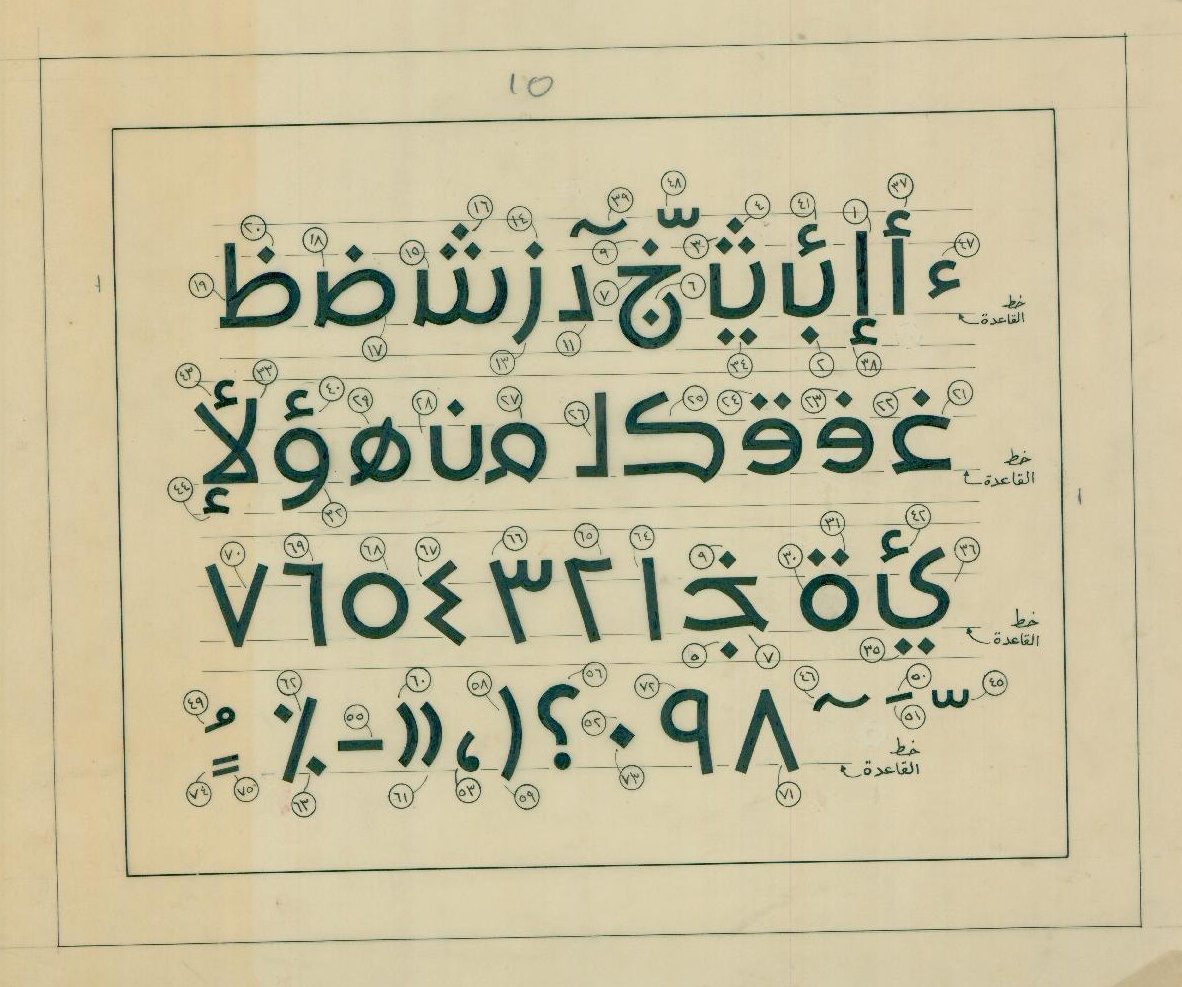 ١٥
٣٧ ١ ٤١ ٤ ٤٨ ٣٩ ١٤ ١٦ ١٨ ٢٠
٤٧ ٣ ٦ ٩ ٧ ١٥ ١٩
ء أ إ ئ ث خ آ د ز ش ض ظ
خط
القاعدة
٣٨ ٢ ٣٤ ١١ ١٣ ١٧
٢١ ٢٢ ٢٣ ٢٤ ٢٥ ٢٦ ٢٧ ٢٨ ٢٩ ٤٠ ٣٣ ٤٣
غ ف ق ك ل م ن ه ؤ لأ
خط
القاعدة
٣٢ ٤٤
٣٦ ٤٢ ٣١ ٣٠ ٩ ٦٤ ٦٥ ٦٦ ٦٧ ٦٨ ٦٩ ٧٠
ئ ة خ ١ ٢ ٣ ٤ ٥ ٦ ٧
خط
القاعدة
٣٥ ٧ ٥
٤٥ ٥٠ ٥١ ٤٦ ٧٢ ٥٢ ٥٦ ٥٨ ٦٠ ٥٥ ٦٢ ٤٩
٨ ٩ ٠ ؟ ) ، » - ٪
خط
القاعدة
٧١ ٧٣ ٥٩ ٥٣ ٦١ ٦٣ ٧٥ ٧٤